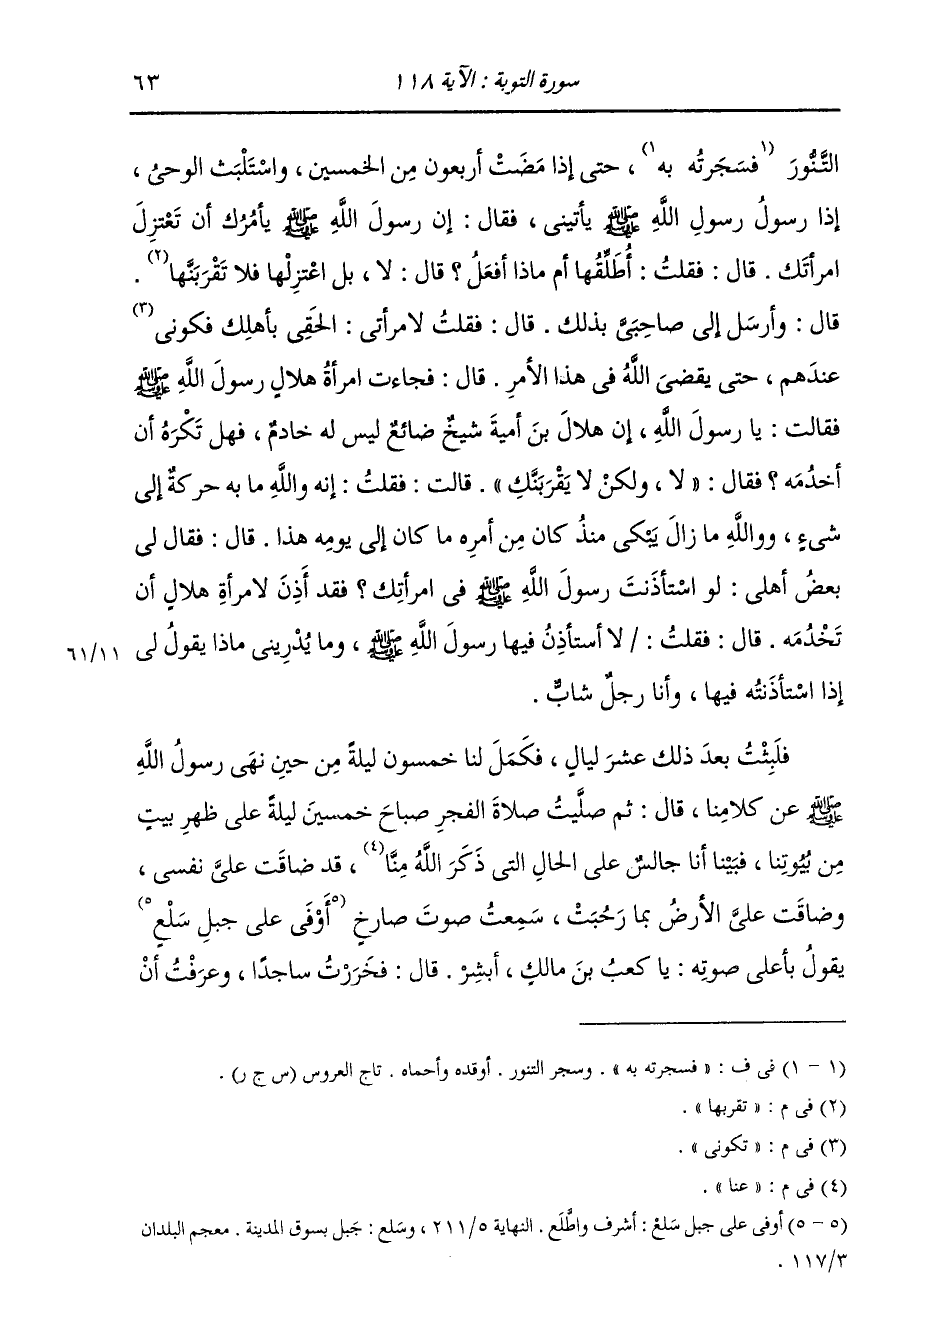 سورة التوبة : الآية ١١٨ ٦٣
التَّنُّورَ (١فسَجَرتُه به١) ، حتى إذا مَضَتْ أربعون مِن الخمسين ، واسْتَلْبَث الوحىُ ،
إذا رسولُ رسولِ اللَّهِ ﷺ يأتينى ، فقال : إن رسولَ اللَّهِ ﷺ يأمُرُك أن تَعْتزِلَ
امرأتَك . قال : فقلتُ : أُطَلِّقُها أم ماذا أفعَلُ ؟ قال : لا ، بل اعْتزِلْها فلا تَقْرَبَنَّها(٢) .
قال : وأرسَل إلى صاحِبَىَّ بذلك . قال : فقلتُ لامرأتى : الحَقِى بأهلِك فكونى(٣)
عندَهم ، حتى يقضىَ اللَّهُ فى هذا الأمرِ . قال : فجاءت امرأةُ هلالٍ رسولَ اللَّهِ ﷺ
فقالت : يا رسولَ اللَّهِ ، إن هلالَ بنَ أميةَ شيخٌ ضائعٌ ليس له خادمٌ ، فهل تَكْرَهُ أن
أخدُمَه ؟ فقال : « لا ، ولكنْ لا يَقْرَبَنَّكِ » . قالت : فقلتُ : إنه واللَّهِ ما به حركةٌ إلى
شىءٍ ، وواللَّهِ ما زالَ يَبْكى منذُ كان مِن أمرِه ما كان إلى يومِه هذا . قال : فقال لى
بعضُ أهلى : لو اسْتأذَنتَ رسولَ اللَّهِ ﷺ فى امرأتِك ؟ فقد أَذِنَ لامرأةِ هلالٍ أن
تَخْدُمَه . قال : فقلتُ : / لا أستأذِنُ فيها رسولَ اللَّهِ ﷺ ، وما يُدْرِينى ماذا يقولُ لى ٦١/١١
إذا اسْتأذَنتُه فيها ، وأنا رجلٌ شابٌّ .
فلَبِثْتُ بعدَ ذلك عشرَ ليالٍ ، فكَمَلَ لنا خمسون ليلةً مِن حينِ نهَى رسولُ اللَّهِ
ﷺ عن كلامِنا ، قال : ثم صلَّيتُ صلاةَ الفجرِ صباحَ خمسينَ ليلةً على ظهرِ بيتٍ
مِن بُيُوتِنا ، فبَيْنا أنا جالسٌ على الحالِ التى ذَكَرَ اللَّهُ مِنَّا(٤) ، قد ضاقَت علىَّ نفسى ،
وضاقَت علىَّ الأرضُ بما رَحُبَتْ ، سَمِعتُ صوتَ صارخٍ (٥أَوْفَى على جبلِ سَلْعٍ٥)
يقولُ بأعلى صوتِه : يا كعبُ بنَ مالكٍ ، أبشِرْ . قال : فخَرَرْتُ ساجدًا ، وعرَفْتُ أنْ
(١ - ١) فى ف : « فسجرته به » . وسجر التنور . أوقده وأحماه . تاج العروس (س ج ر) .
(٢) فى م : « تقربها » .
(٣) فى م : « تكونى » .
(٤) فى م : « عنا » .
(٥ - ٥) أوفى على جبل سَلع : أشرف واطَّلَع . النهاية ٢١١/٥ ، وسَلع : جَبل بسوق المدينة . معجم البلدان
١١٧/٣ .